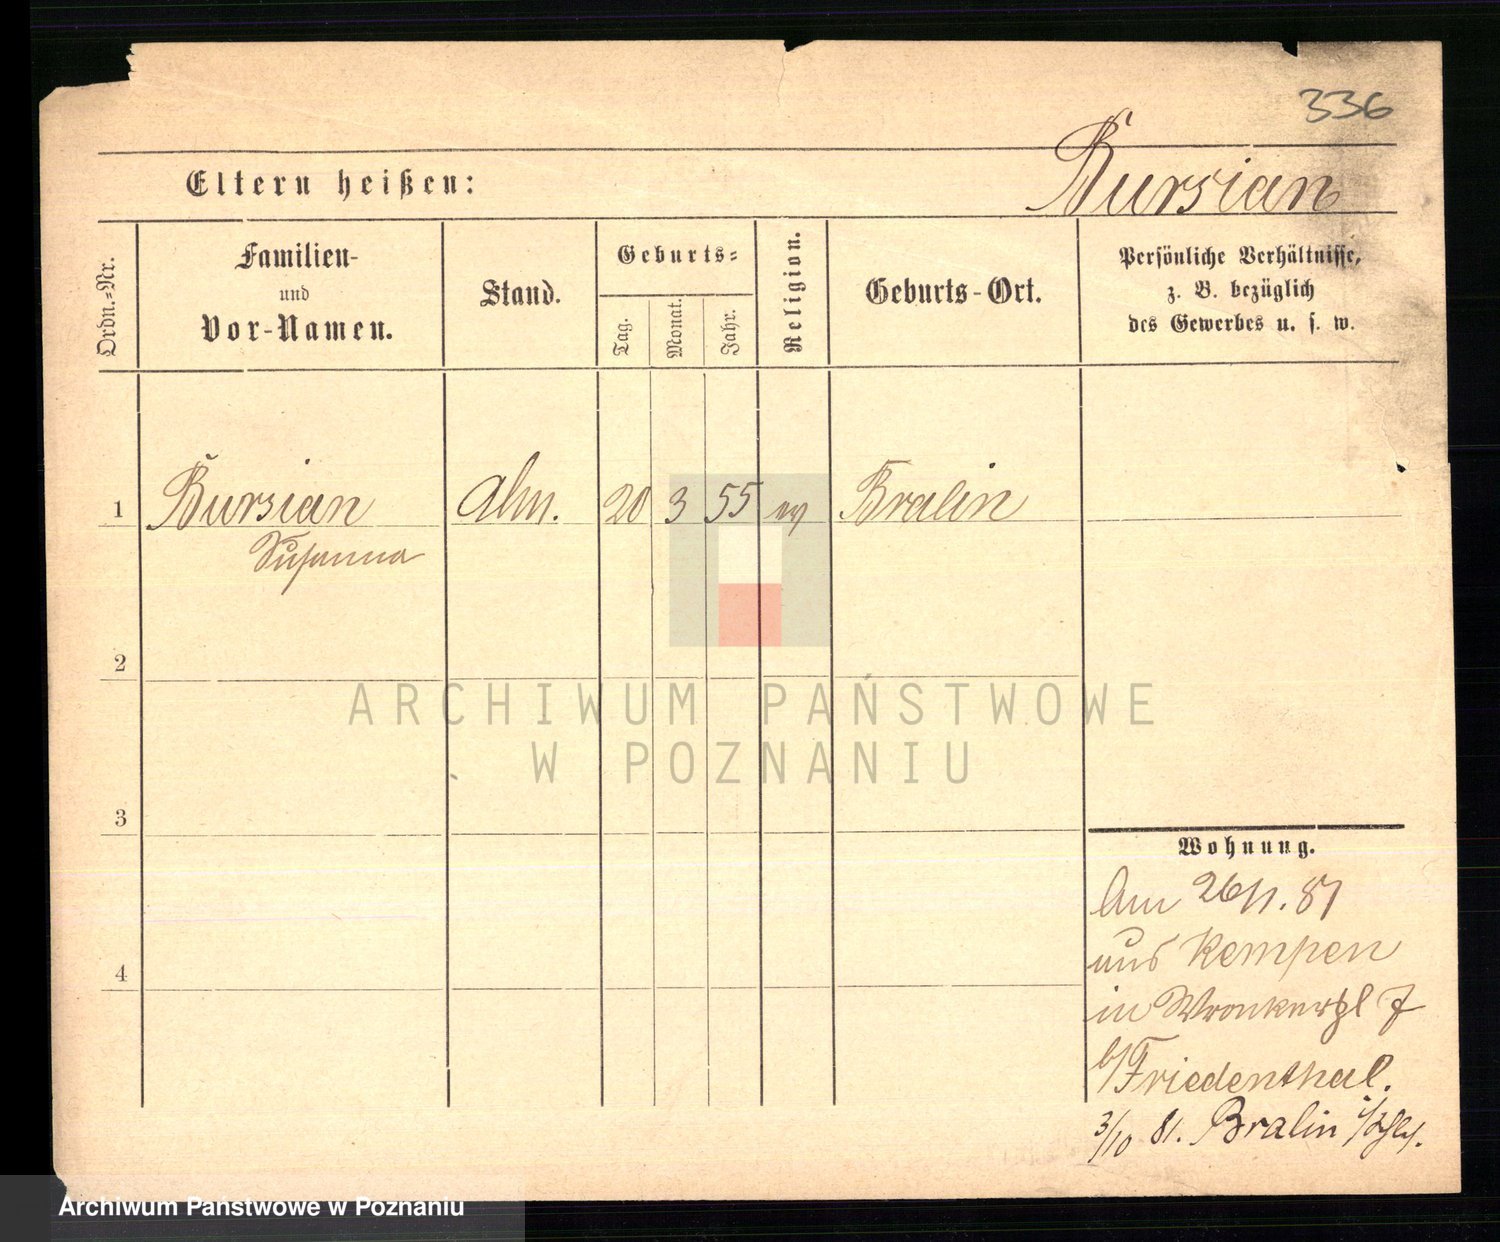 336
Eltern heißen: Bursian
Ordn.=Nr.
Familien-
und
Vor-Namen.
Stand.
Geburts=
Tag.
Monat.
Jahr.
Religion.
Geburts-Ort.
Persönliche Verhältnisse,
z. B. bezüglich
des Gewerbes u. s. w.
1 Bursian 20 3 55 ev Bralin
Susanna
2
3
4
ARCHIWUM PAŃSTWOWE
W POZNANIU
Wohnung.
Am 26/1. 81
aus Kempen
in Wronkerpl 7
b/Friedenthal.
3/10 81. Bralin
Archiwum Państwowe w Poznaniu